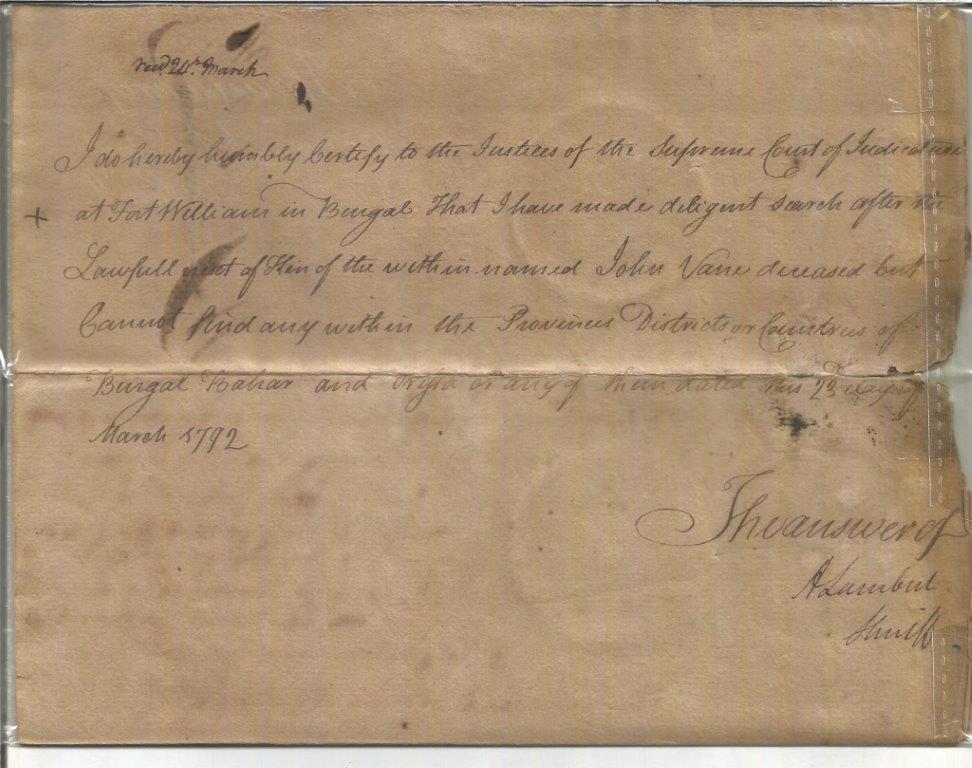 recd. 24th. March
I do hereby humbly Certify to the Justices of the Supreme Court of Judicature
at Fort William in Bengal That I have made diligent search after the
Lawfull next of Kin of the within named John Vane deceased but
Cannot find any within the Provinces Districts or Countries of
Bengal Bahar and Orissa or any of them dated this 23 day of
March 1792
The answer of
A Lambert
Sheriff